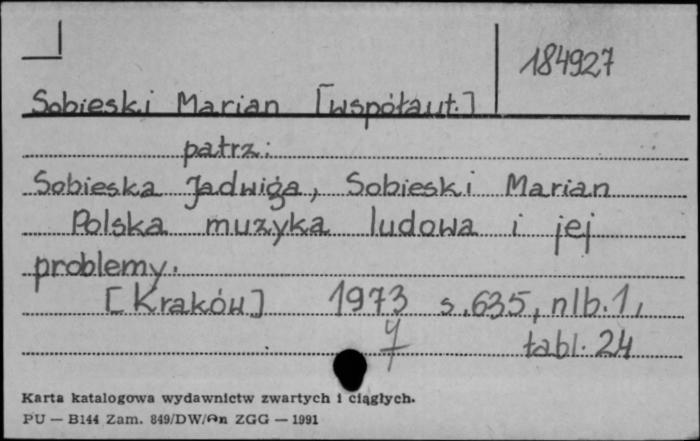 184927
Sobieski Marian [współaut.]
patrz:
Sobieska Jadwiga, Sobieski Marian
Polska muzyka ludowa i jej
problemy.
[Kraków] 1973 s. 635, nlb. 1,
tabl. 24
Karta katalogowa wydawnictw zwartych i ciągłych.
PU — B144 Zam. 849/DW/An ZGG — 1991